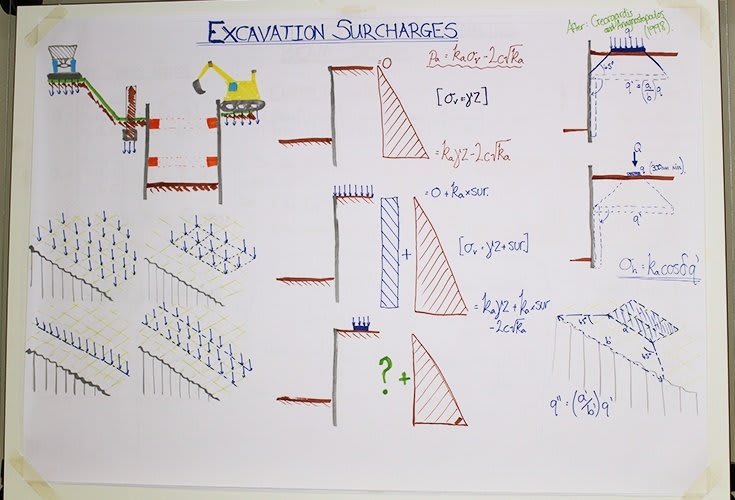 EXCAVATION SURCHARGES
After: Georgiadis
and Anagnostopoulos
(1998).
q
45°
q' = (a/b) q
Pa = kaσv - 2c√ka
= 0
[σv = γZ]
= kaγZ - 2c√ka
Q
q (300mm min)
q'
= 0 + ka × sur.
+
[σv = γZ + sur]
= kaγZ + ka × sur
- 2c√ka
σh = ka cosδ q'
? +
45°
a'
b'
45°
q'' = (a'/b') q'